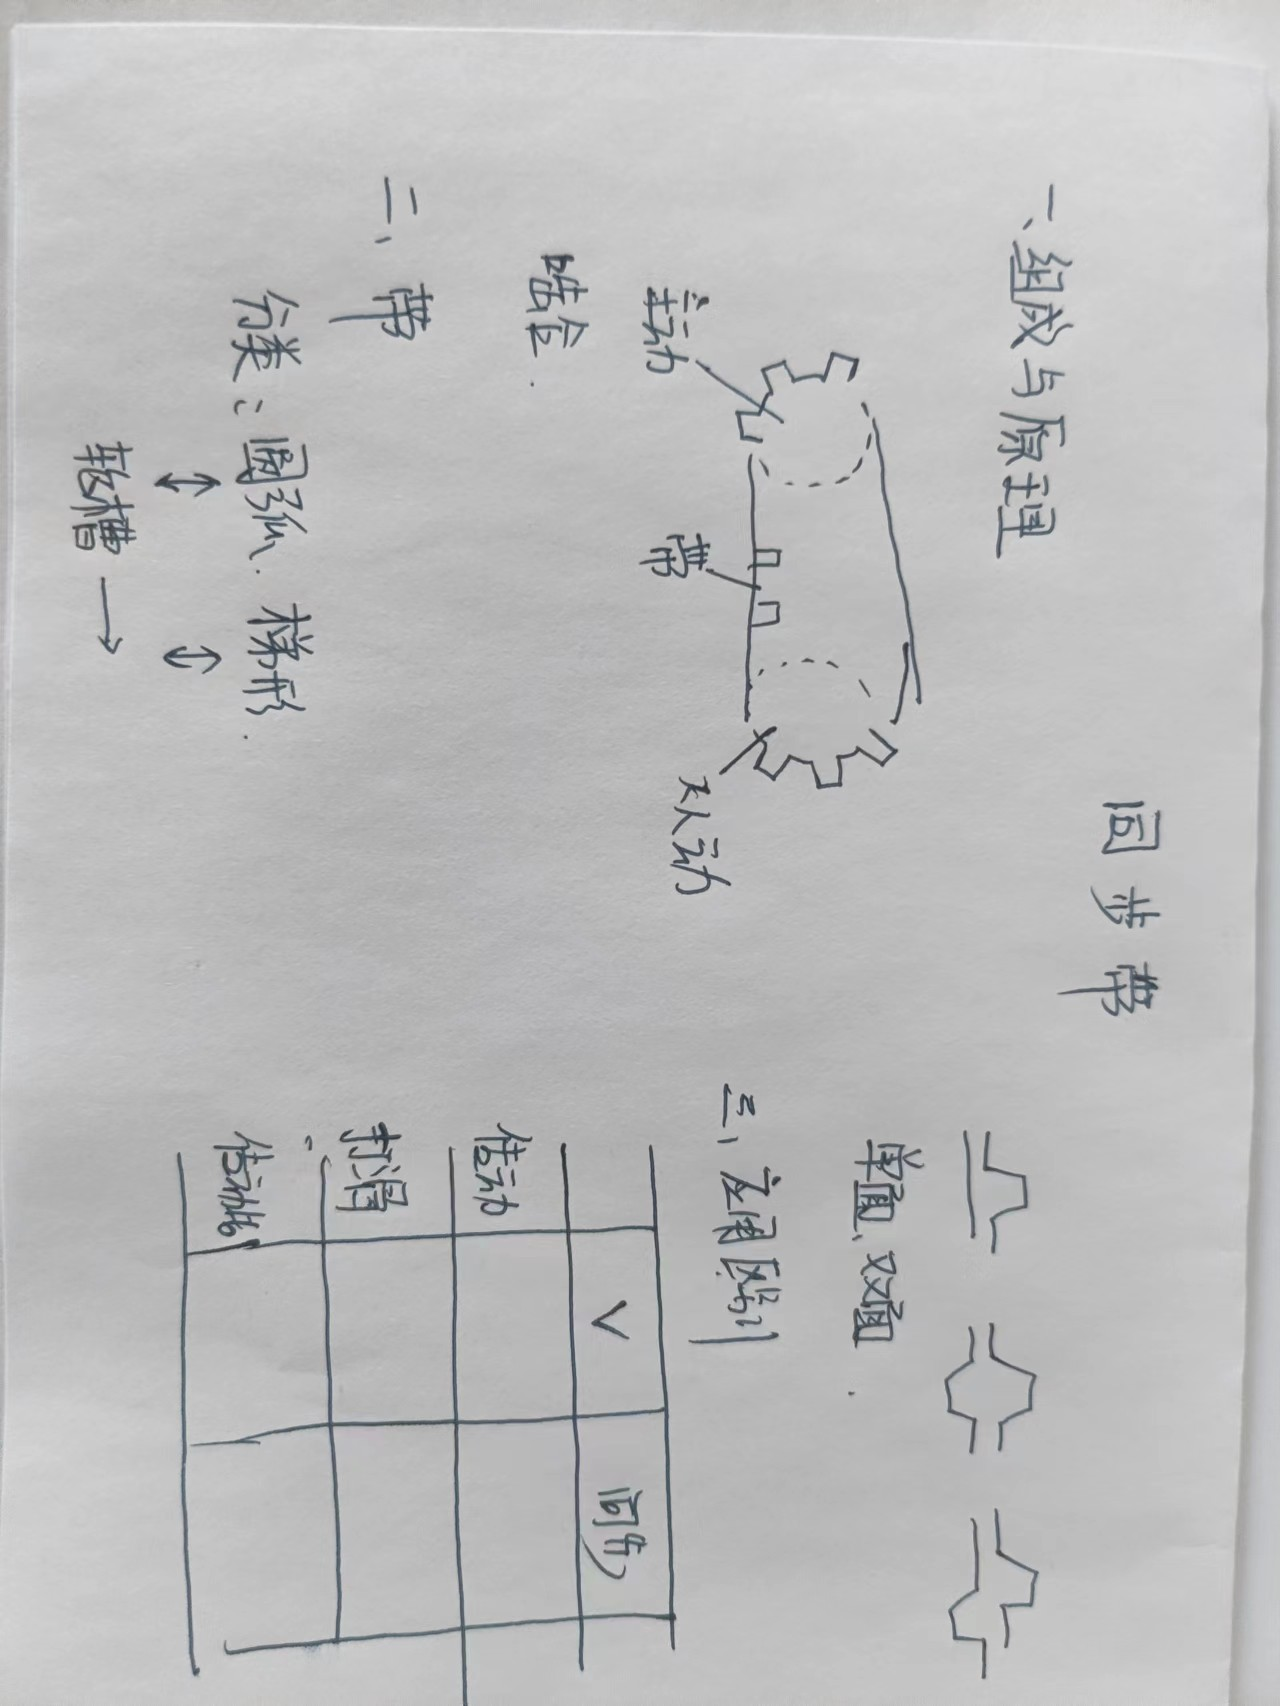 同步带
一、组成与原理
主动
带
从动
啮合.
二、带
分类：圆弧.梯形.
轮槽→
单面、双面.
三、应用区别
V 同步
传动
打滑
传动比